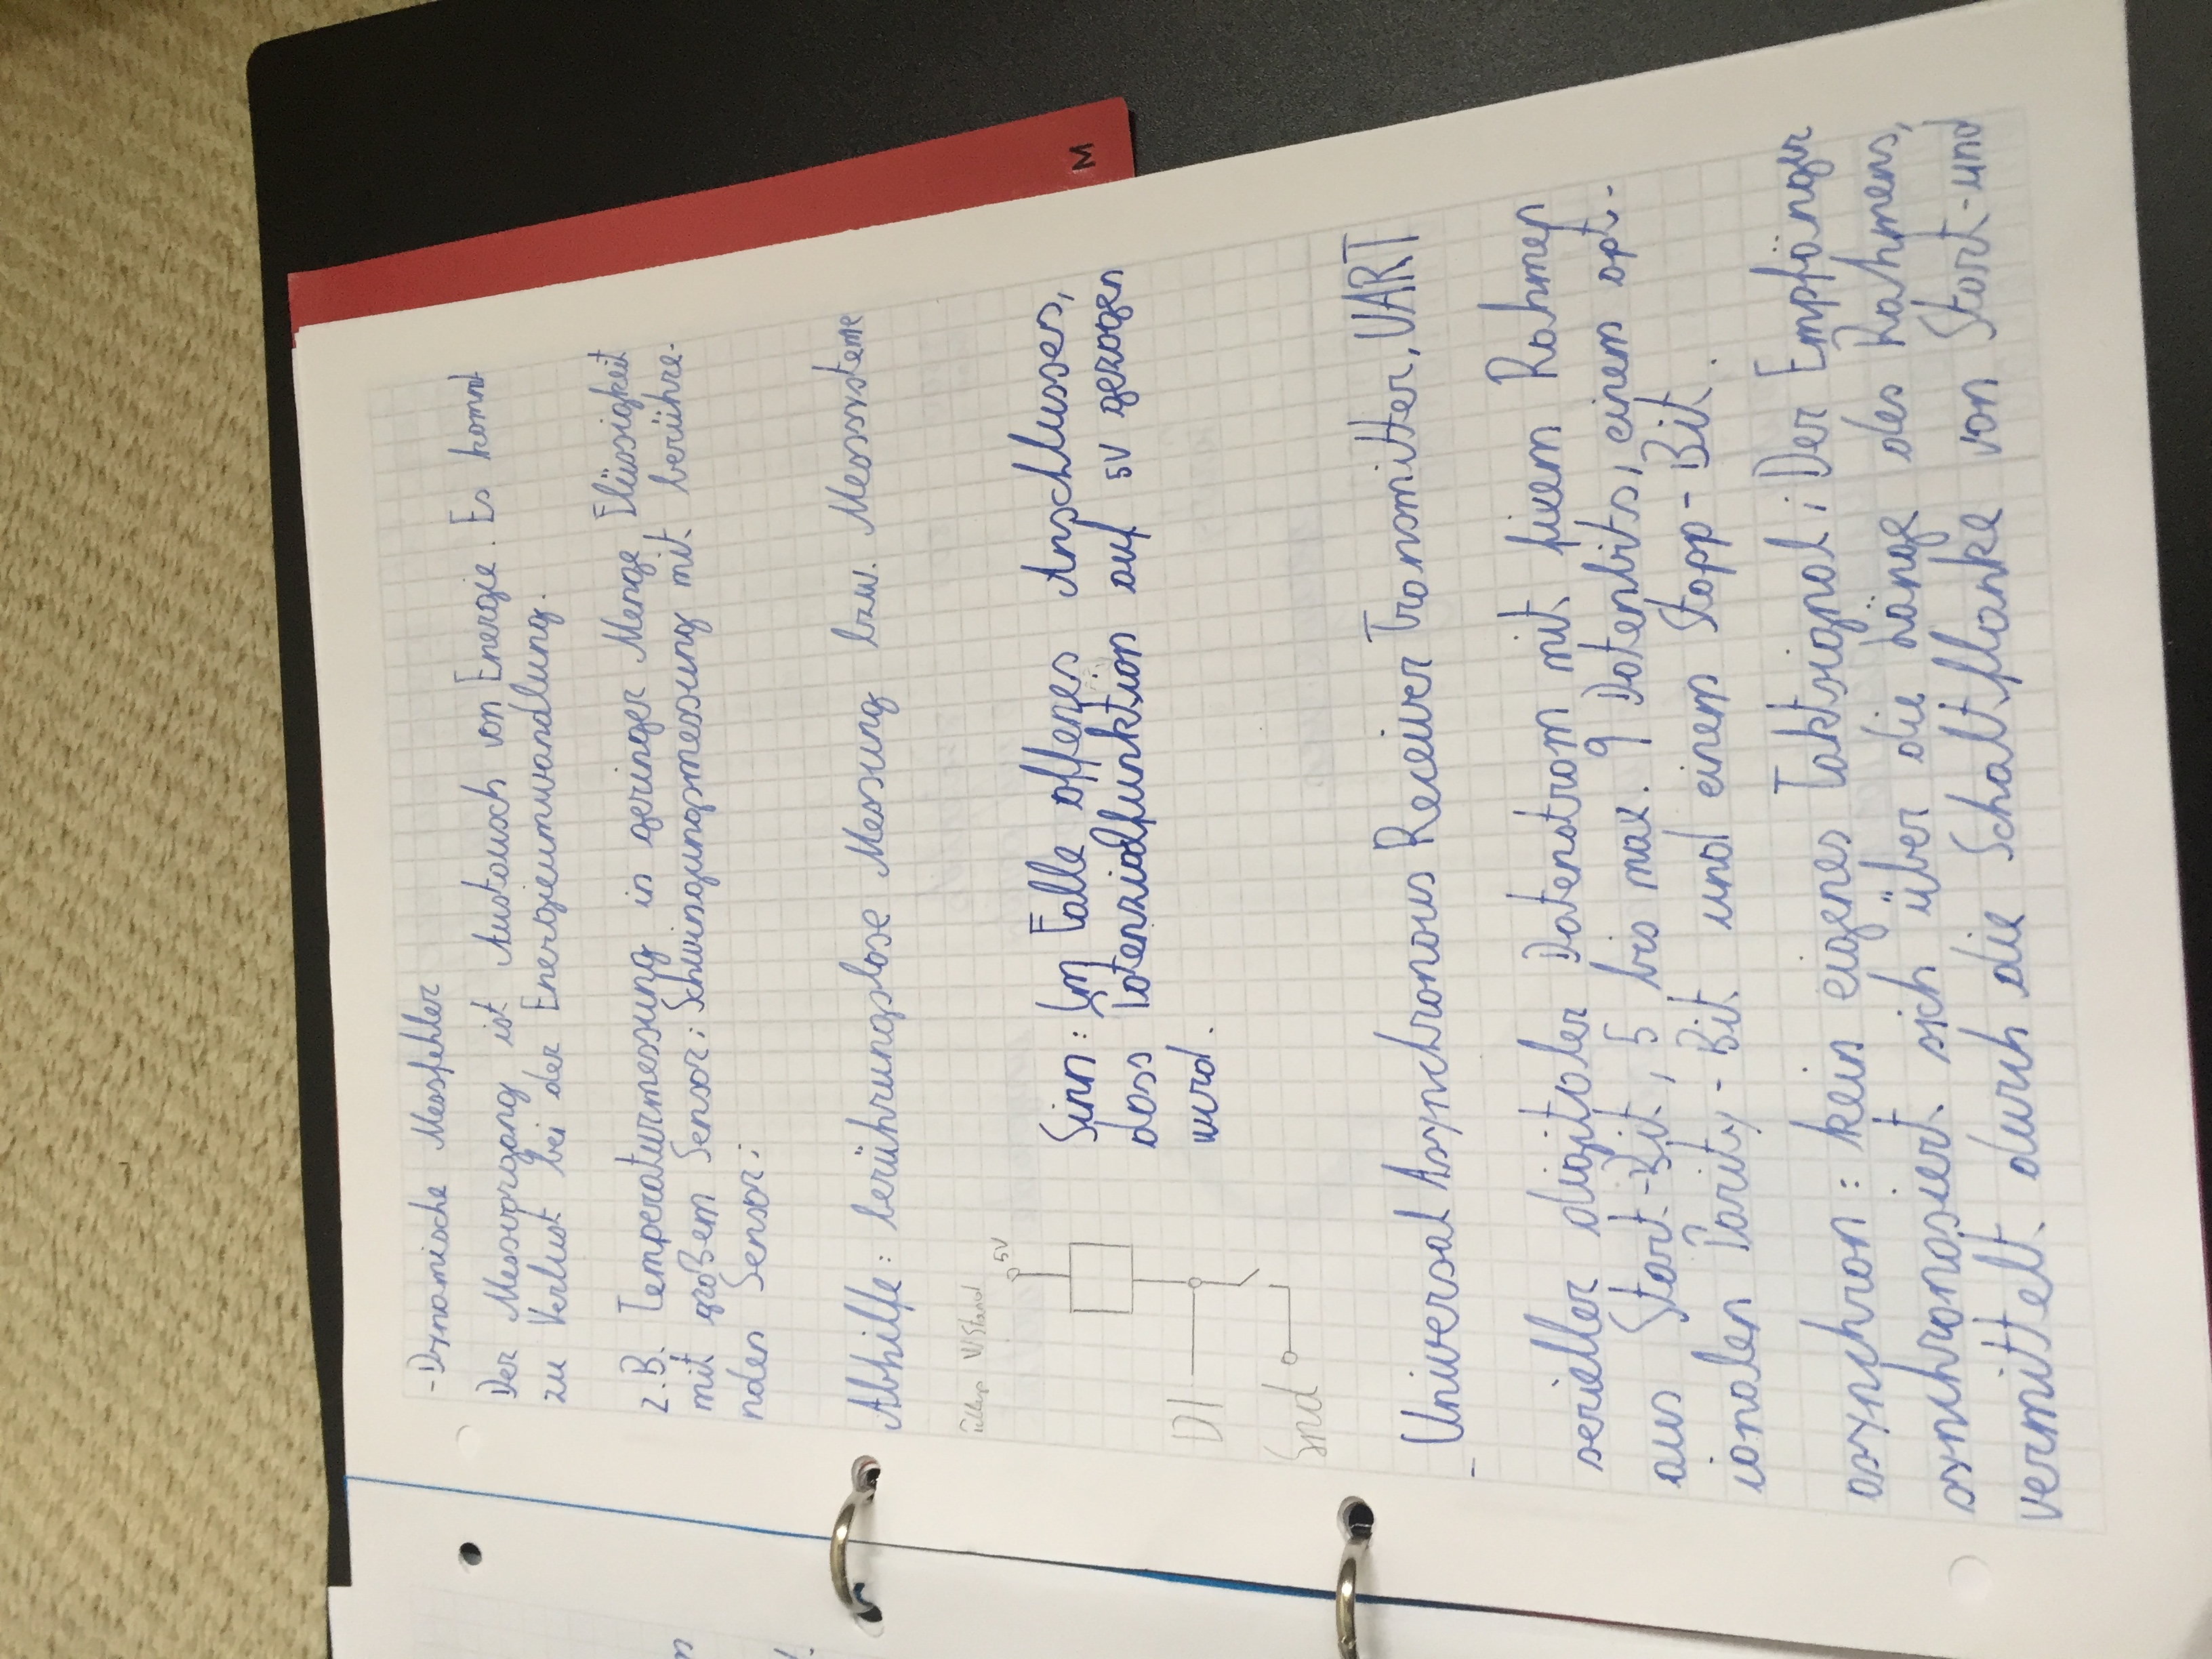 - Dynamische Messfehler
Der Messvorgang ist Austausch von Energie. Es kommt
zu Verlust bei der Energieumwandlung.
z.B. Temperaturmessung in geringer Menge Flüssigkeit
mit großem Sensor; Schwingungsmessung mit berühre-
nden Sensor;
Abhilfe: berührungslose Messung bzw. Messsysteme
Pullup W Stand
5V
Sinn: Im Falle offenes Anschlusses,
dass Potenzialfunktion auf 5V gezogen
wird.
DI
Gnd
M
- Universal Asynchronous Receiver Transmitter, UART
serieller digitaler Datenstrom mit fixem Rahmen
aus Start-Bit, 5 bis max. 9 Datenbits, einem opt-
ionalen Parity-Bit und einem Stopp-Bit.
asynchron: kein eigenes Taktsignal; Der Empfänger
synchronosiert sich über die Länge des Rahmens,
vermittelt durch die Schaltflanke von Start- und